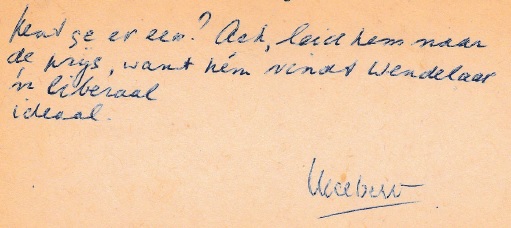 Kent ge er een? Ach, leid hem naar
de prijs, want hém vindt Wendelaar
'n liberaal
ideaal.